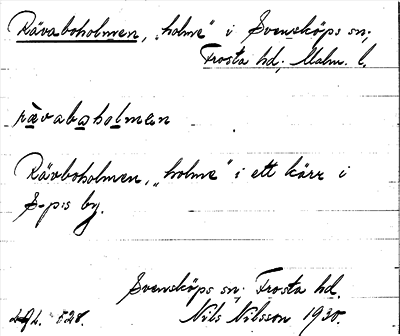 Rävaboholmen, „holme" i Svensköps sn;
Frosta hd; Malm. l.
rävabaholmen
Rävboholmen, „holme" i ett kärr i
S-p:s by.
Svensköps sn; Frosta hd.
528. Nils Nilsson 1930.